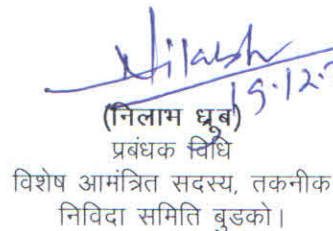 Nilabh
19.12.2
(निलाभ ध्रुब)
प्रबंधक विधि
विशेष आमंत्रित सदस्य, तकनीक
निविदा समिति बुडको।